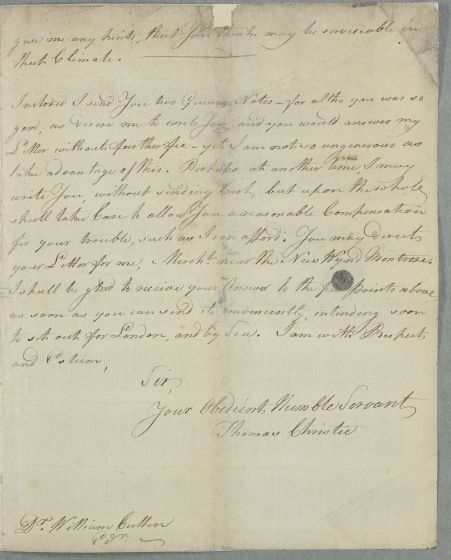 give me any hints, that You think may be serviceable in
that Climate.
Inclosed I send You two Guinea Notes – for altho you was so
good, as desire me to write You and you would answer my
Letter without farther fee – yet I am not so ungenerous as
take advantage of this. Perhaps at another time, I may
write You, without sending Cash, but upon the whole
shall take Care to allow You a reasonable Compensation
for your trouble, such as I can afford. You may direct
your Letter for me, Mercht. near the New Wynd Montrose.
I shall be glad to receive your Answer to the points above
as soon as you can send it conveniently, intending soon
to set out for London, and by Sea. I am with Respect
and Esteem,
Sir,
Your Obedient Humble Servant
Thomas Christie
Dr. William Cullen